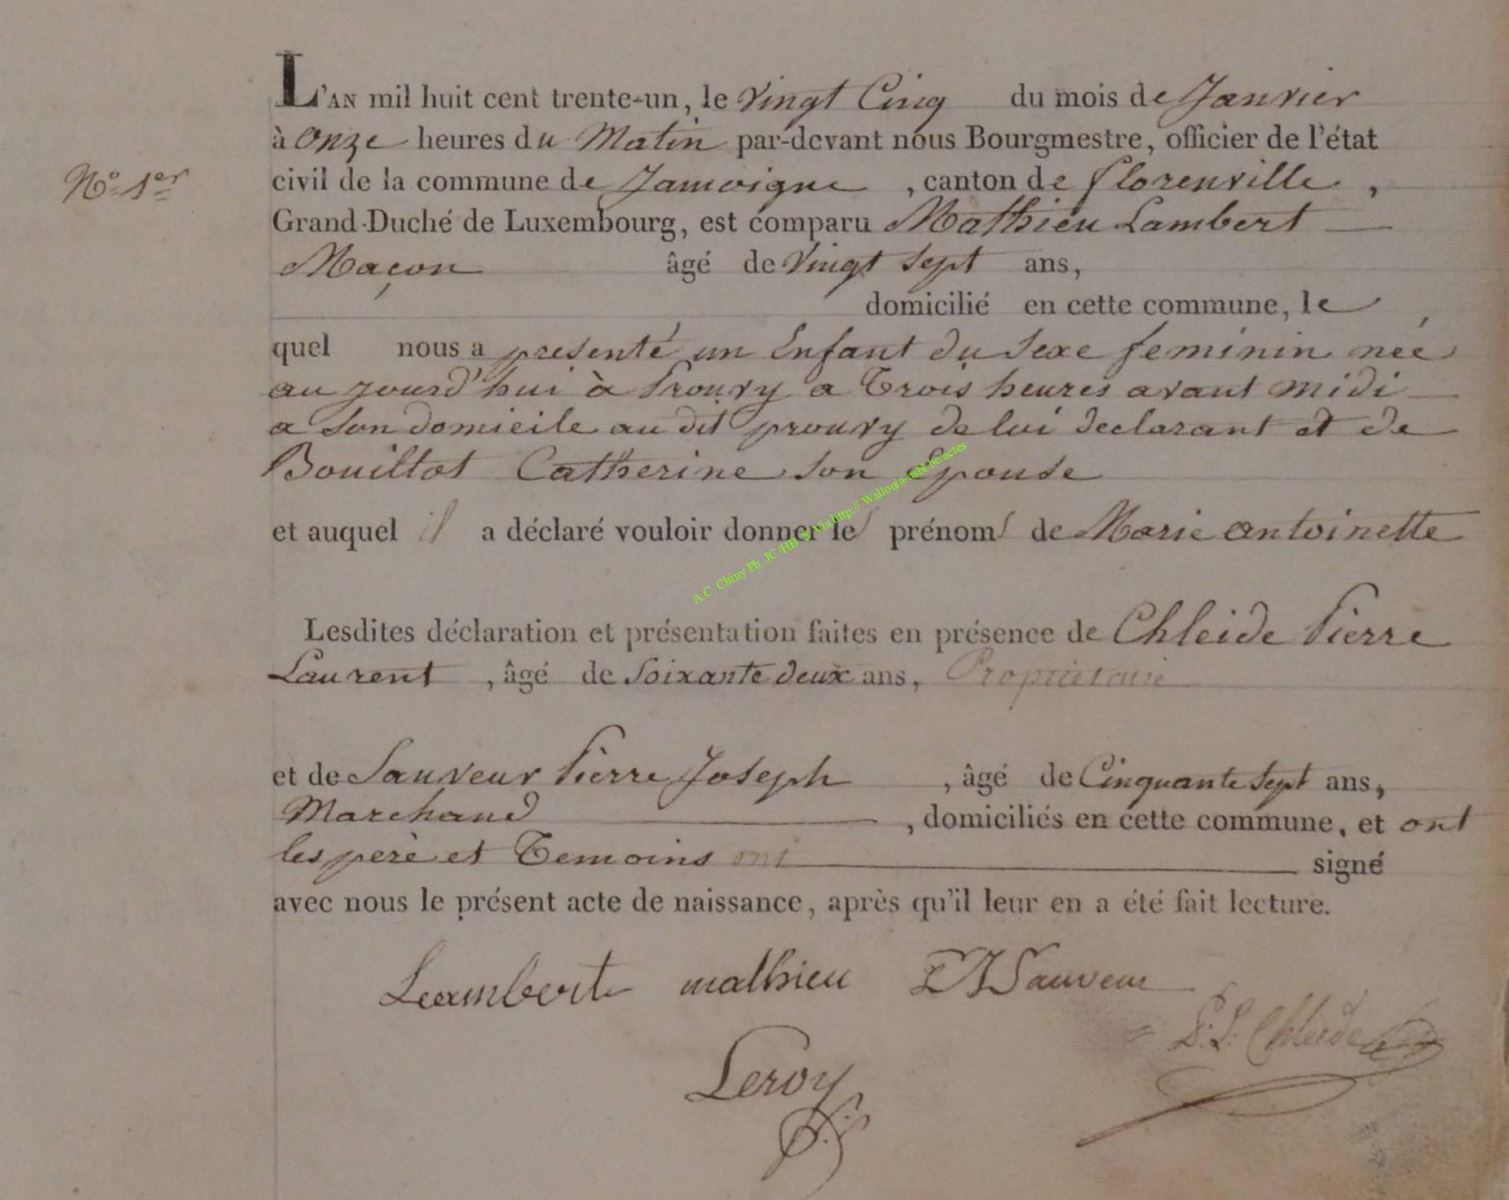 L'AN mil huit cent trente-un, le Vingt Cinq du mois de Janvier
à Onze heures du Matin par-devant nous Bourgmestre, officier de l'état
N.° 1er civil de la commune de Jamoigne, canton de florenville,
Grand-Duché de Luxembourg, est comparu Mathieu Lambert
Maçon âgé de Vingt Sept ans,
domicilié en cette commune, le
quel nous a presenté un Enfant du Sexe feminin née
au jourd'hui à Prouvy a Trois heures avant midi
a Son domicile au dit prouvy de lui declarant et de
Bouillot Catherine son Epouse
et auquel il a déclaré vouloir donner les prénoms de Marie antoinette
A.C Chiny Ph. JC /HB Via http:// Wallonia-asbl.be/actes
Lesdites déclaration et présentation faites en présence de Chleide Pierre
Laurent, âgé de Soixante deux ans, Proprietaire
et de Sauveur Pierre Joseph, âgé de Cinquante Sept ans,
Marchand, domiciliés en cette commune, et ont
les père et Temoins ont signé
avec nous le présent acte de naissance, après qu'il leur en a été fait lecture.
Lambert mathieu PJ Sauveur
P: L: Chleide
Leroy